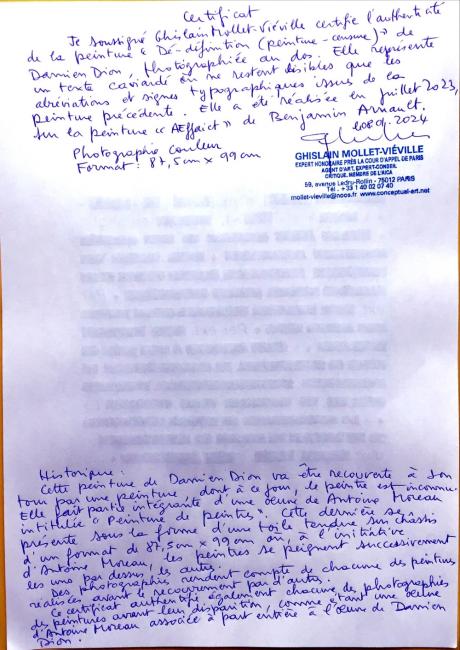 Certificat
Je soussigné Ghislain Mollet-Viéville certifie l'authenticité
de la peinture « Dé-définition (peinture-censure) » de
Damien Dion, photographiée au dos. Elle représente
un texte caviardé où ne restent visibles que les
abréviations et signes typographiques issus de la
peinture précédente. Elle a été réalisée en juillet 2023,
sur la peinture « AEffaict » de Benjamin Arnault.
Photographie couleur
Format : 87,5cm x 99cm
GHISLAIN MOLLET-VIÉVILLE
EXPERT HONORAIRE PRÈS LA COUR D'APPEL DE PARIS
AGENT D'ART, EXPERT-CONSEIL
CRITIQUE, MEMBRE DE L'AICA
59, avenue Ledru-Rollin - 75012 PARIS
Tél. +33 1 40 02 07 40
mollet-vieville@noos.fr www.conceptual-art.net
Historique :
Cette peinture de Damien Dion va être recouverte à son
tour par une peinture dont à ce jour, le peintre est inconnu.
Elle fait partie intégrante d'une oeuvre de Antoine Moreau
intitulée « Peinture de peintres ». Cette dernière se
présente sous la forme d'une toile tendue sur châssis
d'un format de 87,5cm x 99cm où, à l'initiative
d'Antoine Moreau, les peintres se peignent successivement
les uns par dessus les autres.
Des photographies rendent compte de chacune des peintures
réalisées avant le recouvrement par d'autres.
Ce certificat authentifie également chacune des photographies
des peintures avant leur disparition, comme étant une oeuvre
d'Antoine Moreau associée à part entière à l'oeuvre de Damien
Dion.